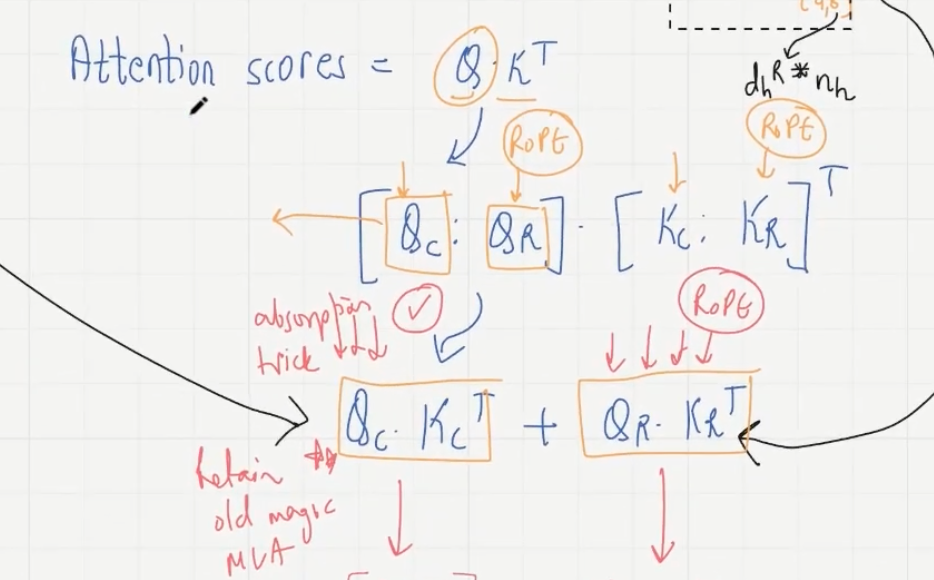 [4,8]
Attention scores = Q · K^T
d_h^R * n_h
RoPE
RoPE
[Q_C : Q_R] · [K_C : K_R]^T
absorption
trick
✓
RoPE
Q_C · K_C^T + Q_R · K_R^T
Retain
old magic
MLA